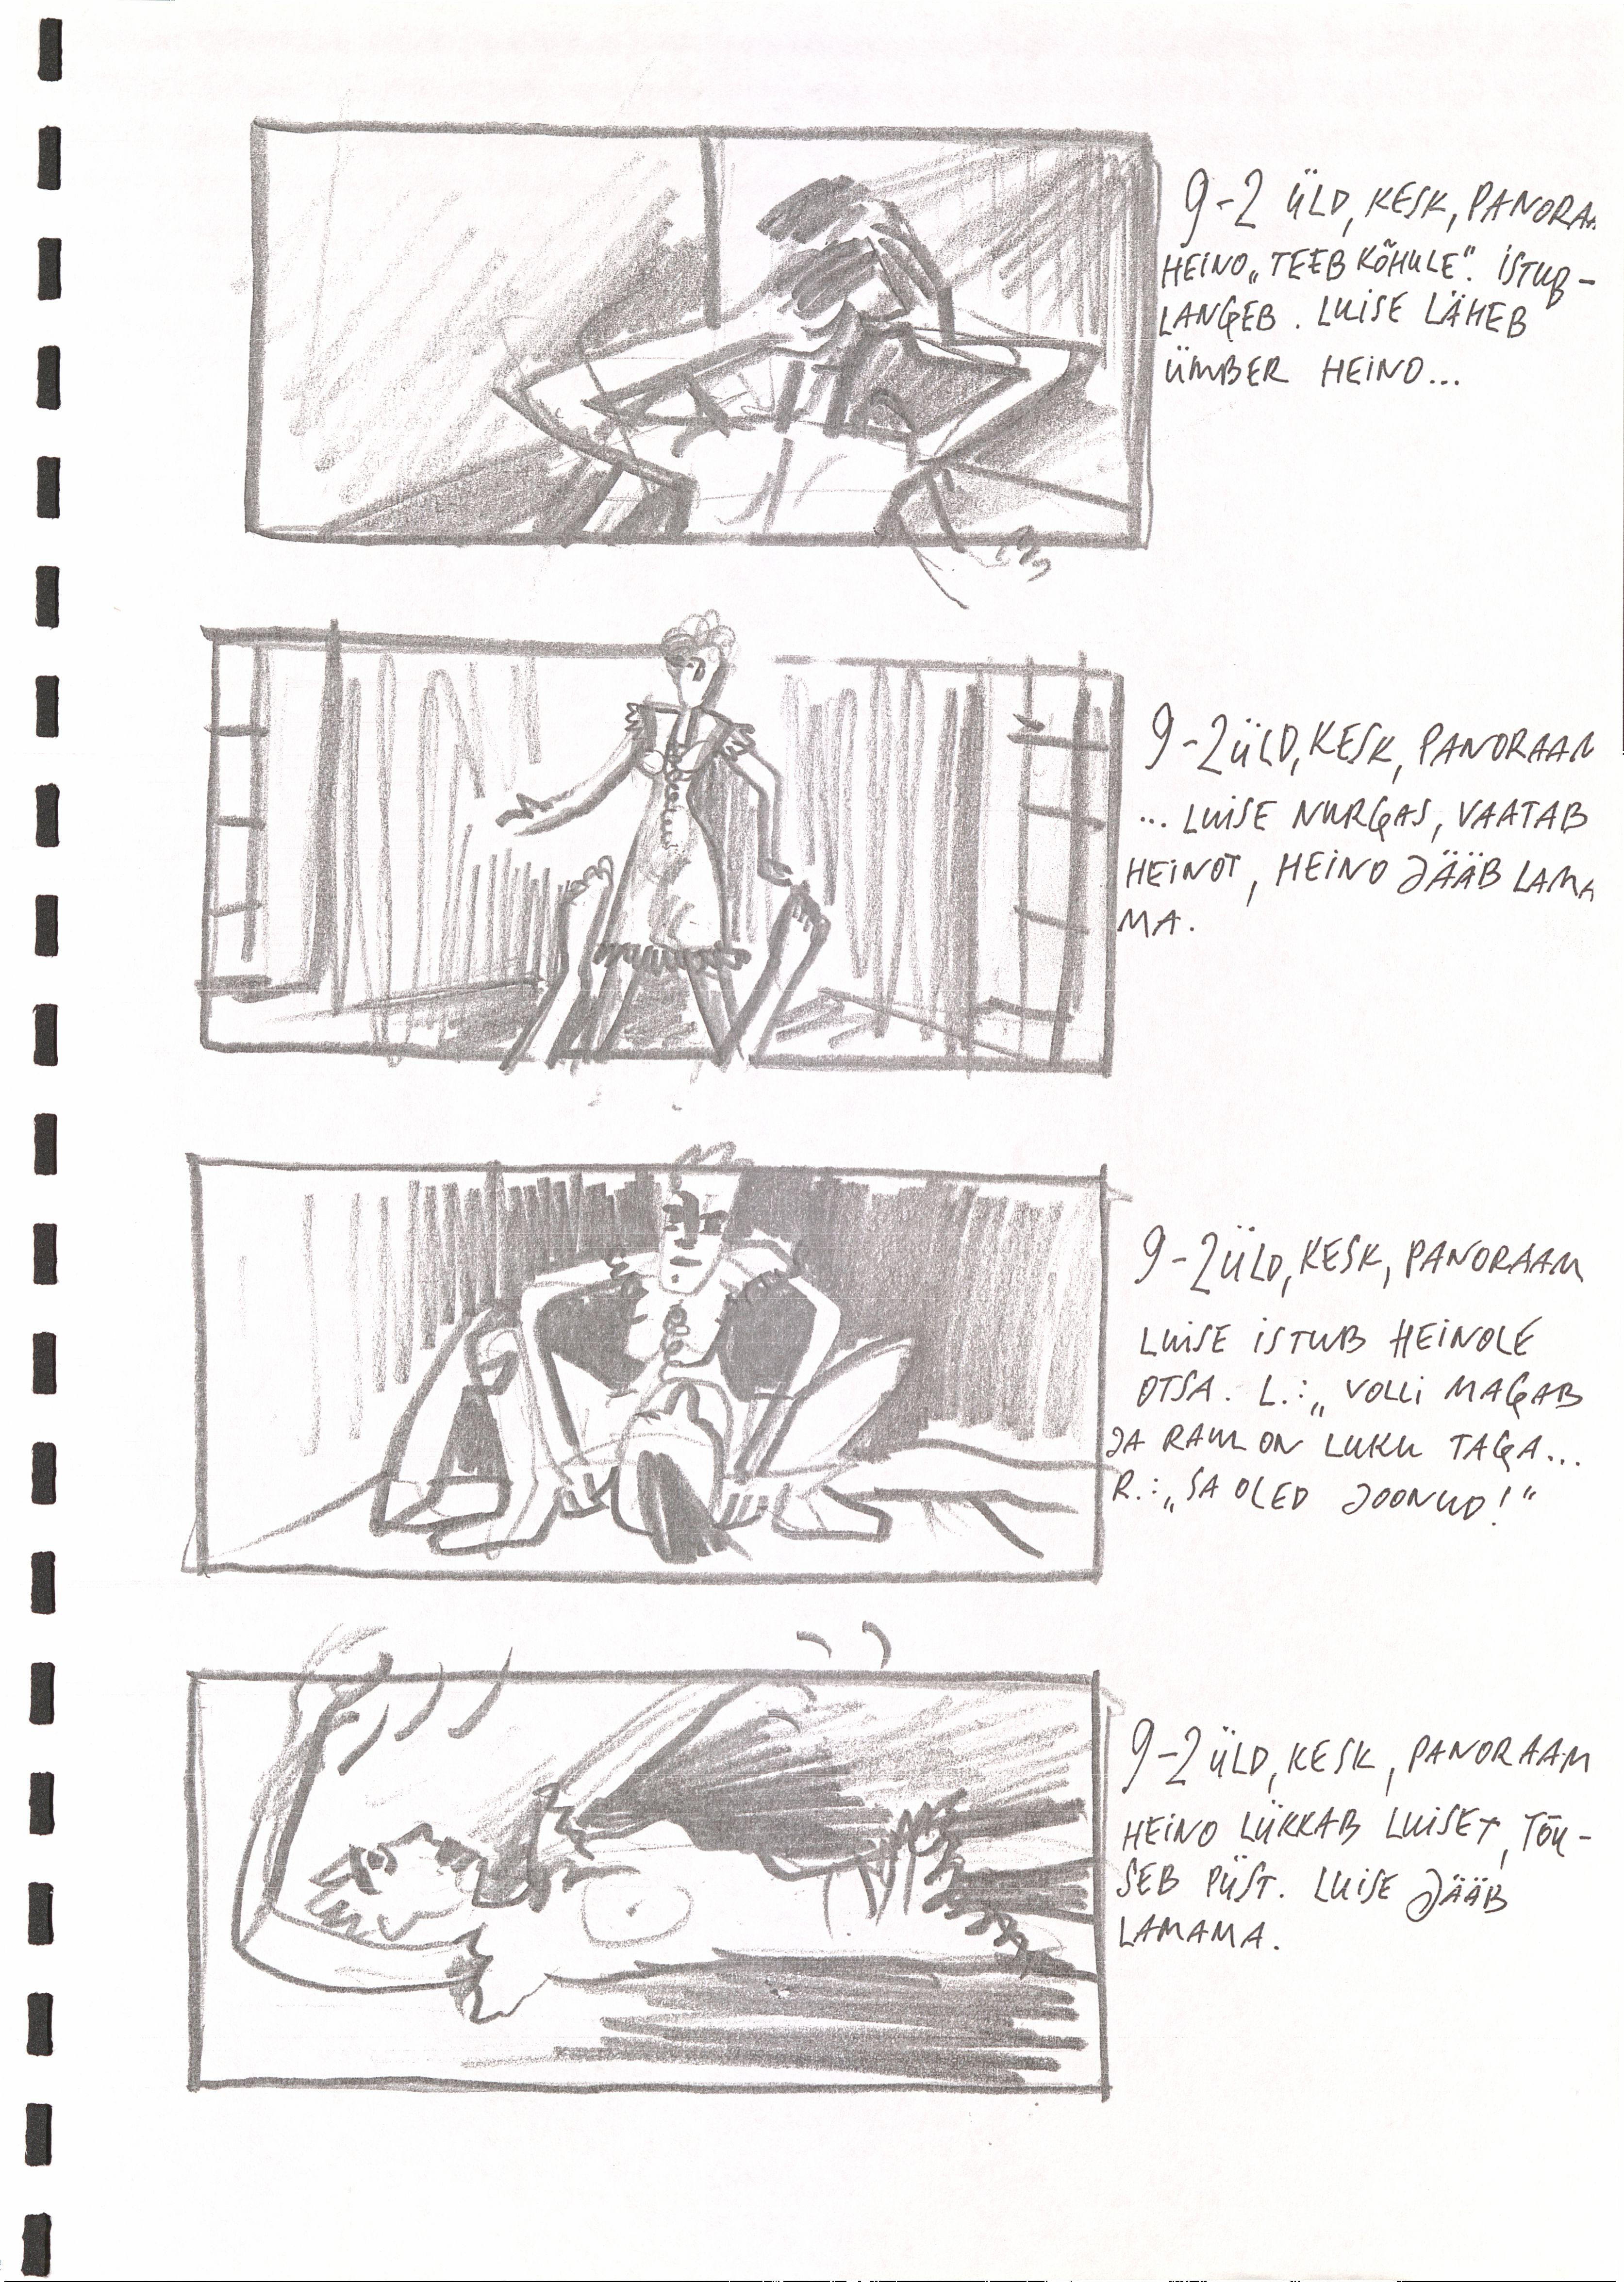 9-2 ÜLD, KESK, PANORAA
HEINO „TEEB KÕHULE". ISTUB-
LANGEB. LUISE LÄHEB
ÜMBER HEINO...
9-2 ÜLD, KESK, PANORAAM
... LUISE NURGAS, VAATAB
HEINOT, HEINO JÄÄB LAMA
MA.
9-2 ÜLD, KESK, PANORAAM
LUISE ISTUB HEINOLE
OTSA. L.: „VOLLI MAGAB
JA RAUL ON LUKU TAGA...
R.: „SA OLED JOONUD!"
9-2 ÜLD, KESK, PANORAAM
HEINO LÜKKAB LUISET, TÕU-
SEB PÜST. LUISE JÄÄB
LAMAMA.